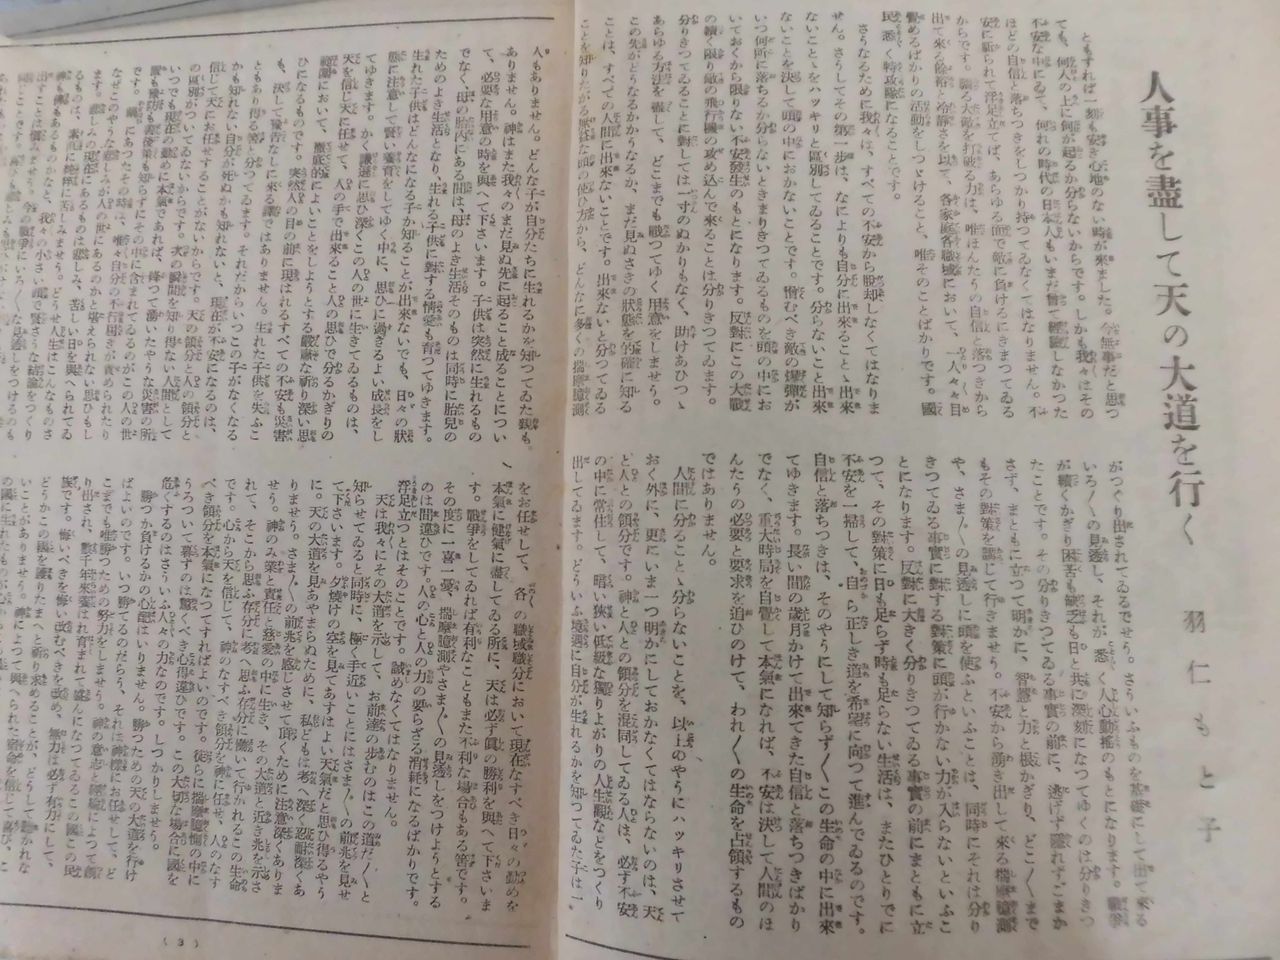 人事を盡して天の大道を行く
羽仁もと子
ともすれば一刻も安き心地のない時が來ました。今無事だと思つ
ても、何人の上に何が起るか分らないからです。しかも我々はその
不安な中にゐて、何れの時代の日本人もいまだ曾て經驗しなかつた
ほどの自信と落ちつきをしつかり持つてゐなくてはなりません。不
安に驅られて浮足立てば、あらゆる面で敵に負けるにきまつてゐる
からです。驕る大敵を打破る力は、唯ほんたうの自信と落つきから
出て來る餘裕と冷靜さを以て、各家庭各職域において、一人々々目
覺めるばかりの活動をしつゞけること、唯そのことばかりです。國
民悉く特攻隊になることです。
さうなるために我々は、すべての不安から脱却しなくてはなりま
せん。さうしてその第一歩は、なによりも自分に出來ることゝ出來
ないことをハッキリと區別してゐることです。分らないこと出來
ないことを決して頭の中におかないことです。憎むべき敵の爆彈が
いつ何所に落ちるか分らないときまりきつてゐるものを頭の中にお
いておくから限りない不安發生のもとになります。反對にこの大戰
の續く限り敵の飛行機の攻め込んで來ることは分りきつてゐます。
分りきつてゐることに對しては一寸のぬかりもなく、助けあひつゝ
あらゆる方法を竭して、どこまでも戰つてゆく用意をしませう。
この先がどうなるかかうなるか、まだ見ぬさきの狀態を的確に知る
ことは、すべての人間に出來ないことです。出來ないと分つてゐる
ことを知りたがる
な頭の使ひ方から、どんなに多くの揣摩臆測
がつくり出されてゐるでせう。さういふものを基礎にして出て來る
いろ〱の見透し、それが、悉く人心動搖のもとになります。戰爭
が續くかぎり困苦も缺乏も日と共に深刻になつてゆくのは分りきつ
たことです。その分りきつてゐる事實の前に、逃げず隱れずごまか
さず、まともに立つて明かに、智慧と力と根かぎり、どこ〱まで
もその對策を講じて行きませう。不安から湧き出して來る揣摩臆測
や、さま〲の見透しに頭を使ふといふことは、同時にそれは分り
きつてゐる事實に對する對策に頭が行かない力が入らないといふこ
とになります。反對に大きく分りきつてゐる事實の前にまともに立
つて、その對策に日も足らず時も足らない生活は、またひとりでに
不安を一掃して、自ら正しき道を希望に向つて進んでゐるのです。
自信と落ちつきは、そのやうにして知らず〱この生命の中に出來
てゆきます。長い間の歲月かけて出來てきた自信と落ちつきばかり
でなく、重大時局を自覺して本氣になれば、不安は決して人間のほ
んたうの必要と要求を追ひのけて、われ〱の生命を占領するもの
ではありません。
人間に分ることゝ分らないことを、以上のやうにハッキリさせて
おく外に、更にいま一つ明かにしておかなくてはならないのは、天
と人との領分です。神と人との領分を混同してゐる人は、必ず不安
の中に常住して、暗い狹い低級な獨りよがりの人生觀などをつくり
出してゐます。どういふ境遇に自分が生れるかを知つてゐた子は一
人もありません。どんな子が自分たちに生れるかを知つてゐた親も
ありません。神はまた我々のまだ見ぬ先に起ること成ることについ
て、必要な用意の時を與へて下さいます。子供は突然に生れるもの
でなく、母の胎内にある間は、母のよき生活そのものは同時に胎兒の
ためのよき生活となり、生れる子供に對する情愛も育つてゆきます。
生れた子供はどんなになる子か知ることが出來ないでも、日々の狀
態に注意して賢い養育をしてゆく中に、思ひに過ぎるよい成長をし
てゆきます。かく謙遜に思ひ深くこの人の世に生きてゐるものは、
天を信じ天に任せて、人の手で出來ること人の思ひで分るかぎりの
範圍において、徹底的によいことをしようとする嚴肅な祈り深い思
ひになるものです。突然人の目の前に現はれるすべての不安も災害
も、決して豫告なしに來る譯ではありません。生れた子供を失ふこ
ともあり得る筈と分つてゐます。それだからいつこの子がなくなる
かも知れない自分が死ぬかも知れないと、現在が不安になるのは、
信じて天にお任せすることがないからです。天の領分と人の領分と
の區別がついてゐないからです。次の瞬間を知り得ない人間として
いつでも現在の勤めに本氣であれば、降つて湧いたやうな災害の所
をお任せして、各〻の職域職分において現在なすべき日々の勤めを
本氣に健氣に盡してゐる所に、天は必ず眞の勝利を與へて下さいま
す。戰爭をしてゐれば有利なこともまた不利な場合もある筈です。
その度に一喜一憂、揣摩臆測やさま〲の見透しをつけようとする
のは間違ひです。人の心と人の力の要らざる消耗になるばかりです。
浮足立つとはそのことです。誡めなくてはなりません。
天は我々にその大道を示して、お前達の歩むのはこの道だ〱と
知らせてゐると同時に、極く手近いことにはさま〲の前兆を見せ
て下さいます。夕燒けの空を見てあすはよい天氣だと思ひ得るやう
に。天の大道を見あやまらぬために、私どもは考へ深く忍耐深くあ
りませう。さま〲の前兆を感じさせて頂くために注意深くありま
せう。神のみ業と責任と慈愛の中に生き、その大道と近き兆を示さ
れて、そこから思ふ存分に考へ思ふ存分に働いて行かれるこの生命
です。だから天を信じて、神のなすべき領分を神に任せ、人のなす
べき領分を本氣になつてすればよいのです。徒らに揣摩臆測の中に
うろついて暮すのは驚くべき心得違ひです。この大切な場合に國を
危くするのはさういふ人々の力なのです。しつかりしませう。
勝つか負けるかの心配はいりません。勝つための天の大道を行け
ばよいのです。いつ勝てるのだらう、それは神樣にお任せして、ど
こまでも唯勝つための努力をしませう。神の意志と經綸によつて創
り出され、數千年來養はれ育てられて盛んになつてゐるこの國この民
族です。悔いべきを悔い改むべきを改め、無力は必ず有力にして、
どうかこの國を護りたまへと祈り求めることが、どうして聽かれな
いことがありませう。神によつて與へられた宿命を信じて喜び、こ
(3)